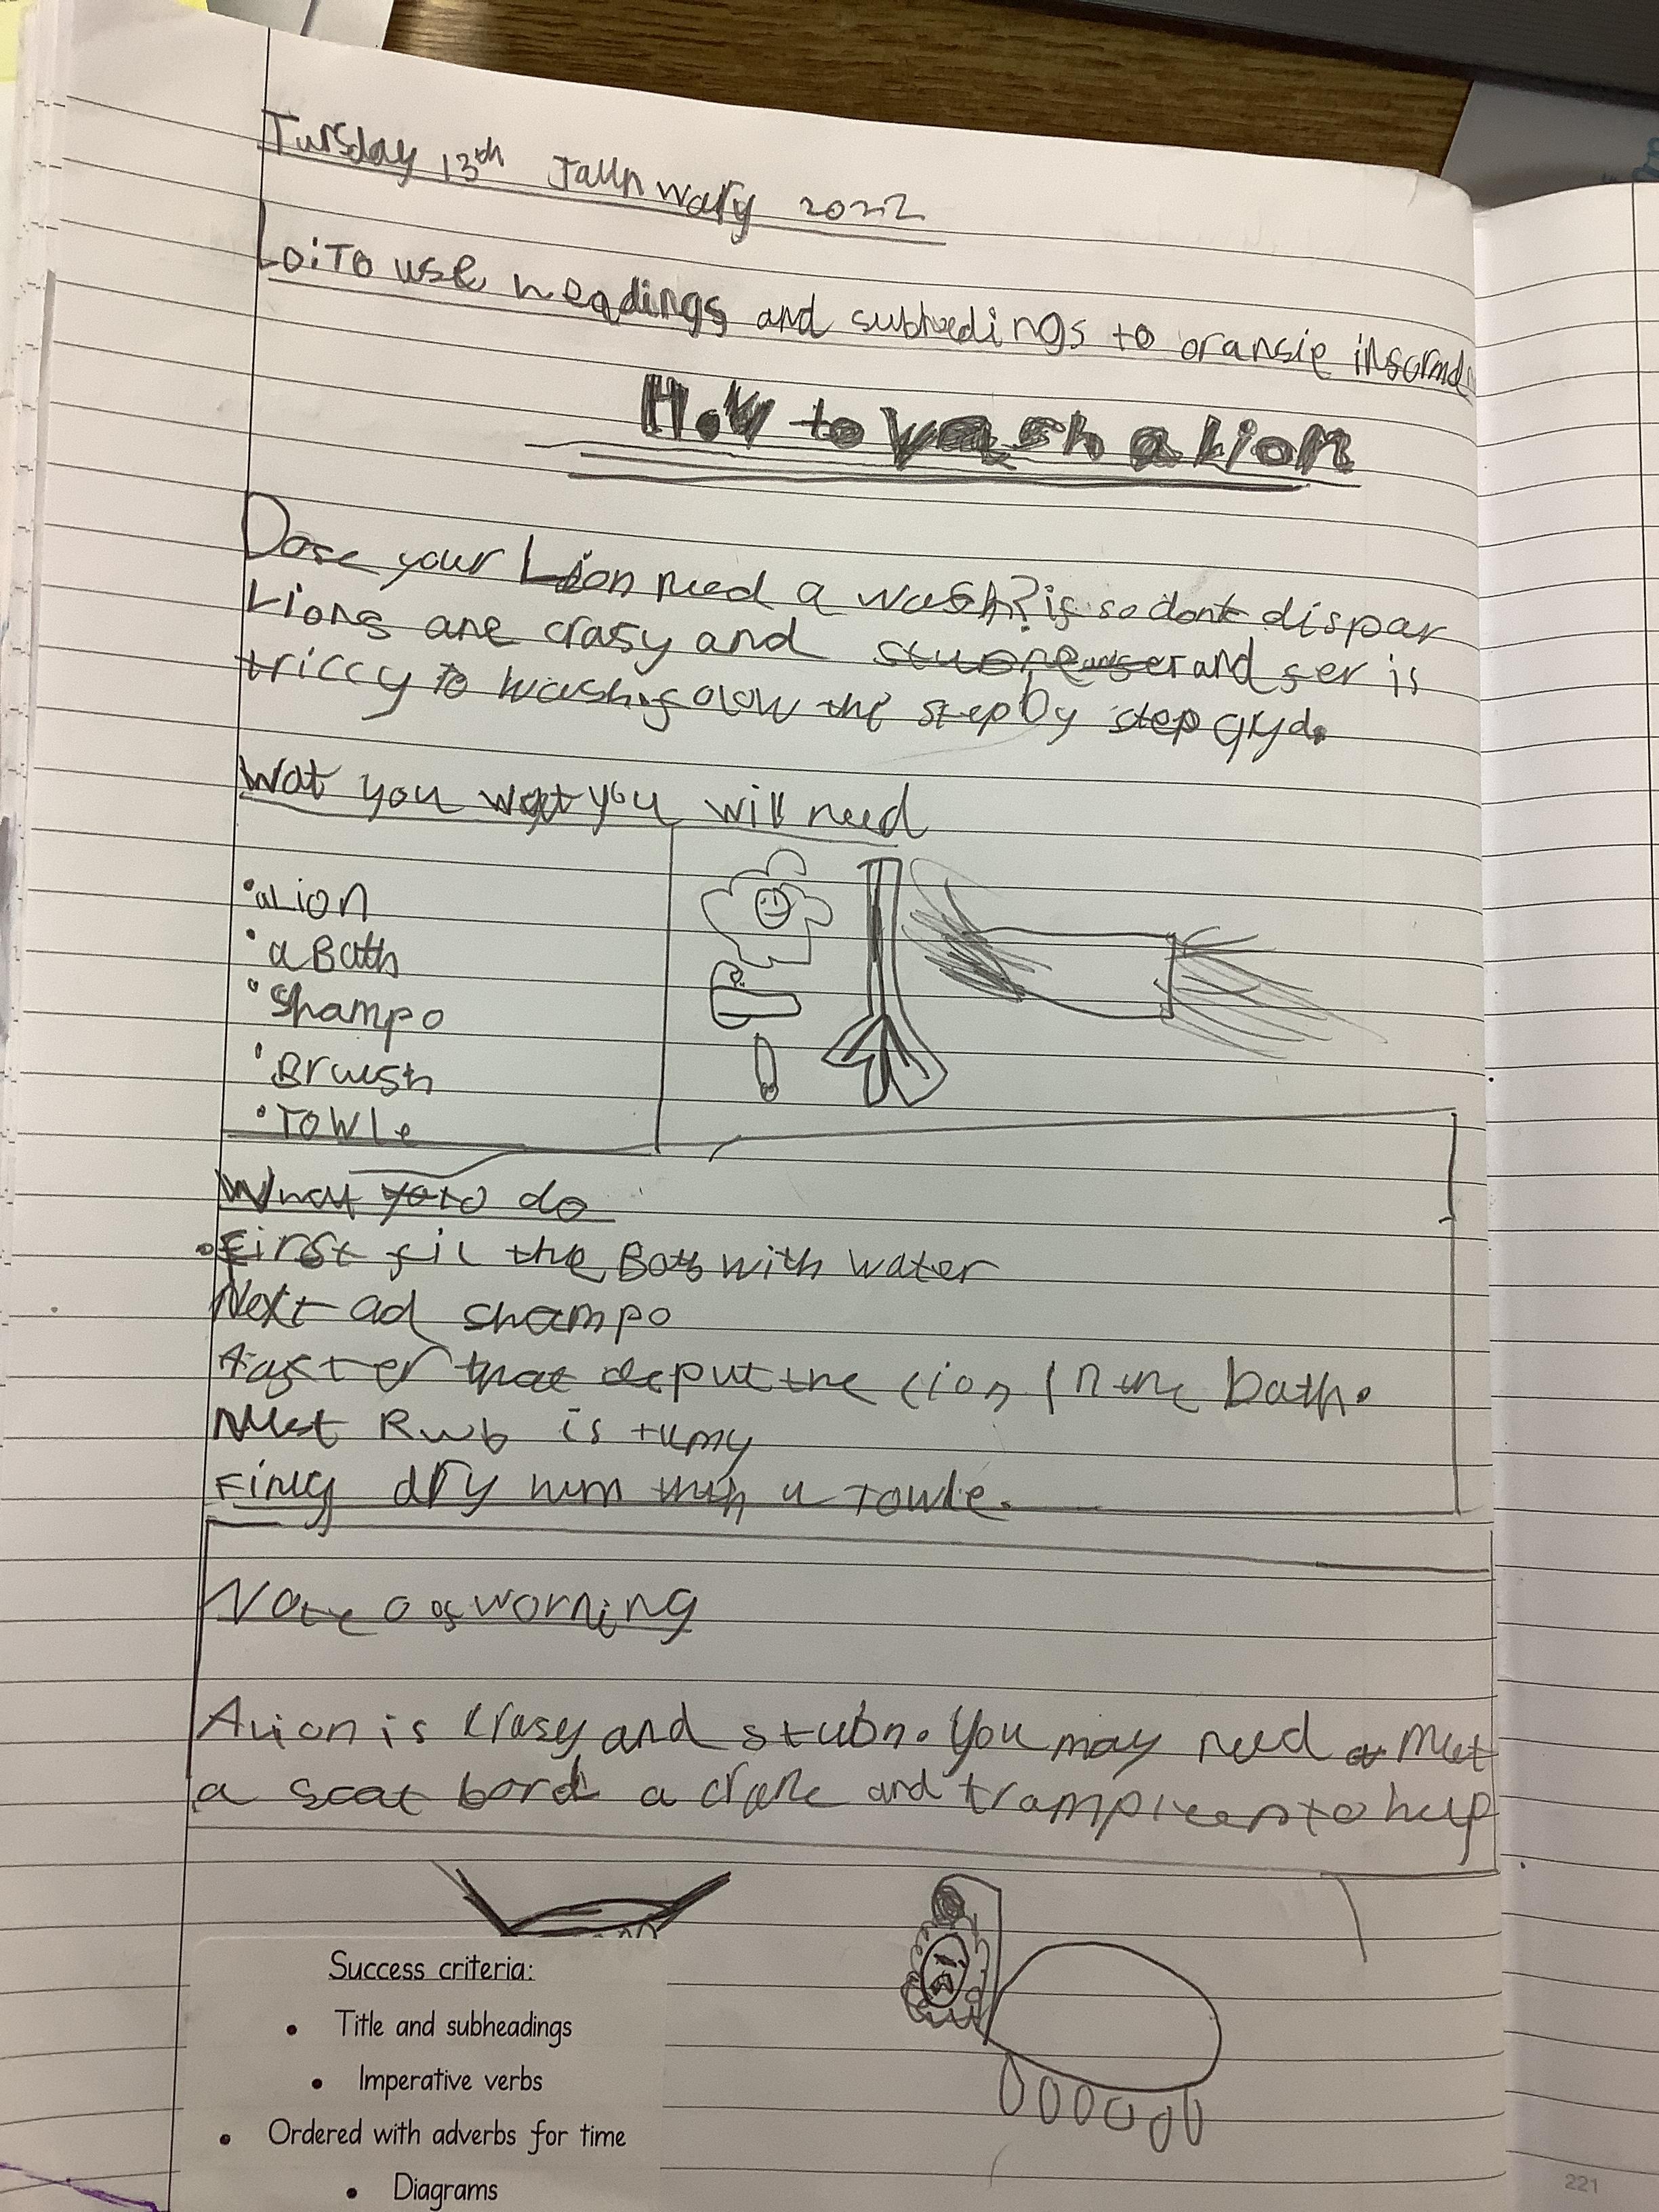 Tursday 13th Jaunwary 2022
LO: To use headings and subhedings to oransie
How to wash a Lion
Dose your Lion need a wash? is so dont dispar
Lions are crasy and and fer is
triccy to wash folow the step by step gyd.
Wat you wat you will need
• a Lion
• a Bath
• Shampo
• Brush
• Towle
What to do
• First fil the Bath with water
Next ad shampo
Aafter that put the lion in the bath.
Next Rub is tumy
dry him with a Towle.
Note of worning
A Lion is crasy and stubn. You may need
a scat bord a crane and trampleen to help
Success criteria:
• Title and subheadings
• Imperative verbs
• Ordered with adverbs for time
• Diagrams
221